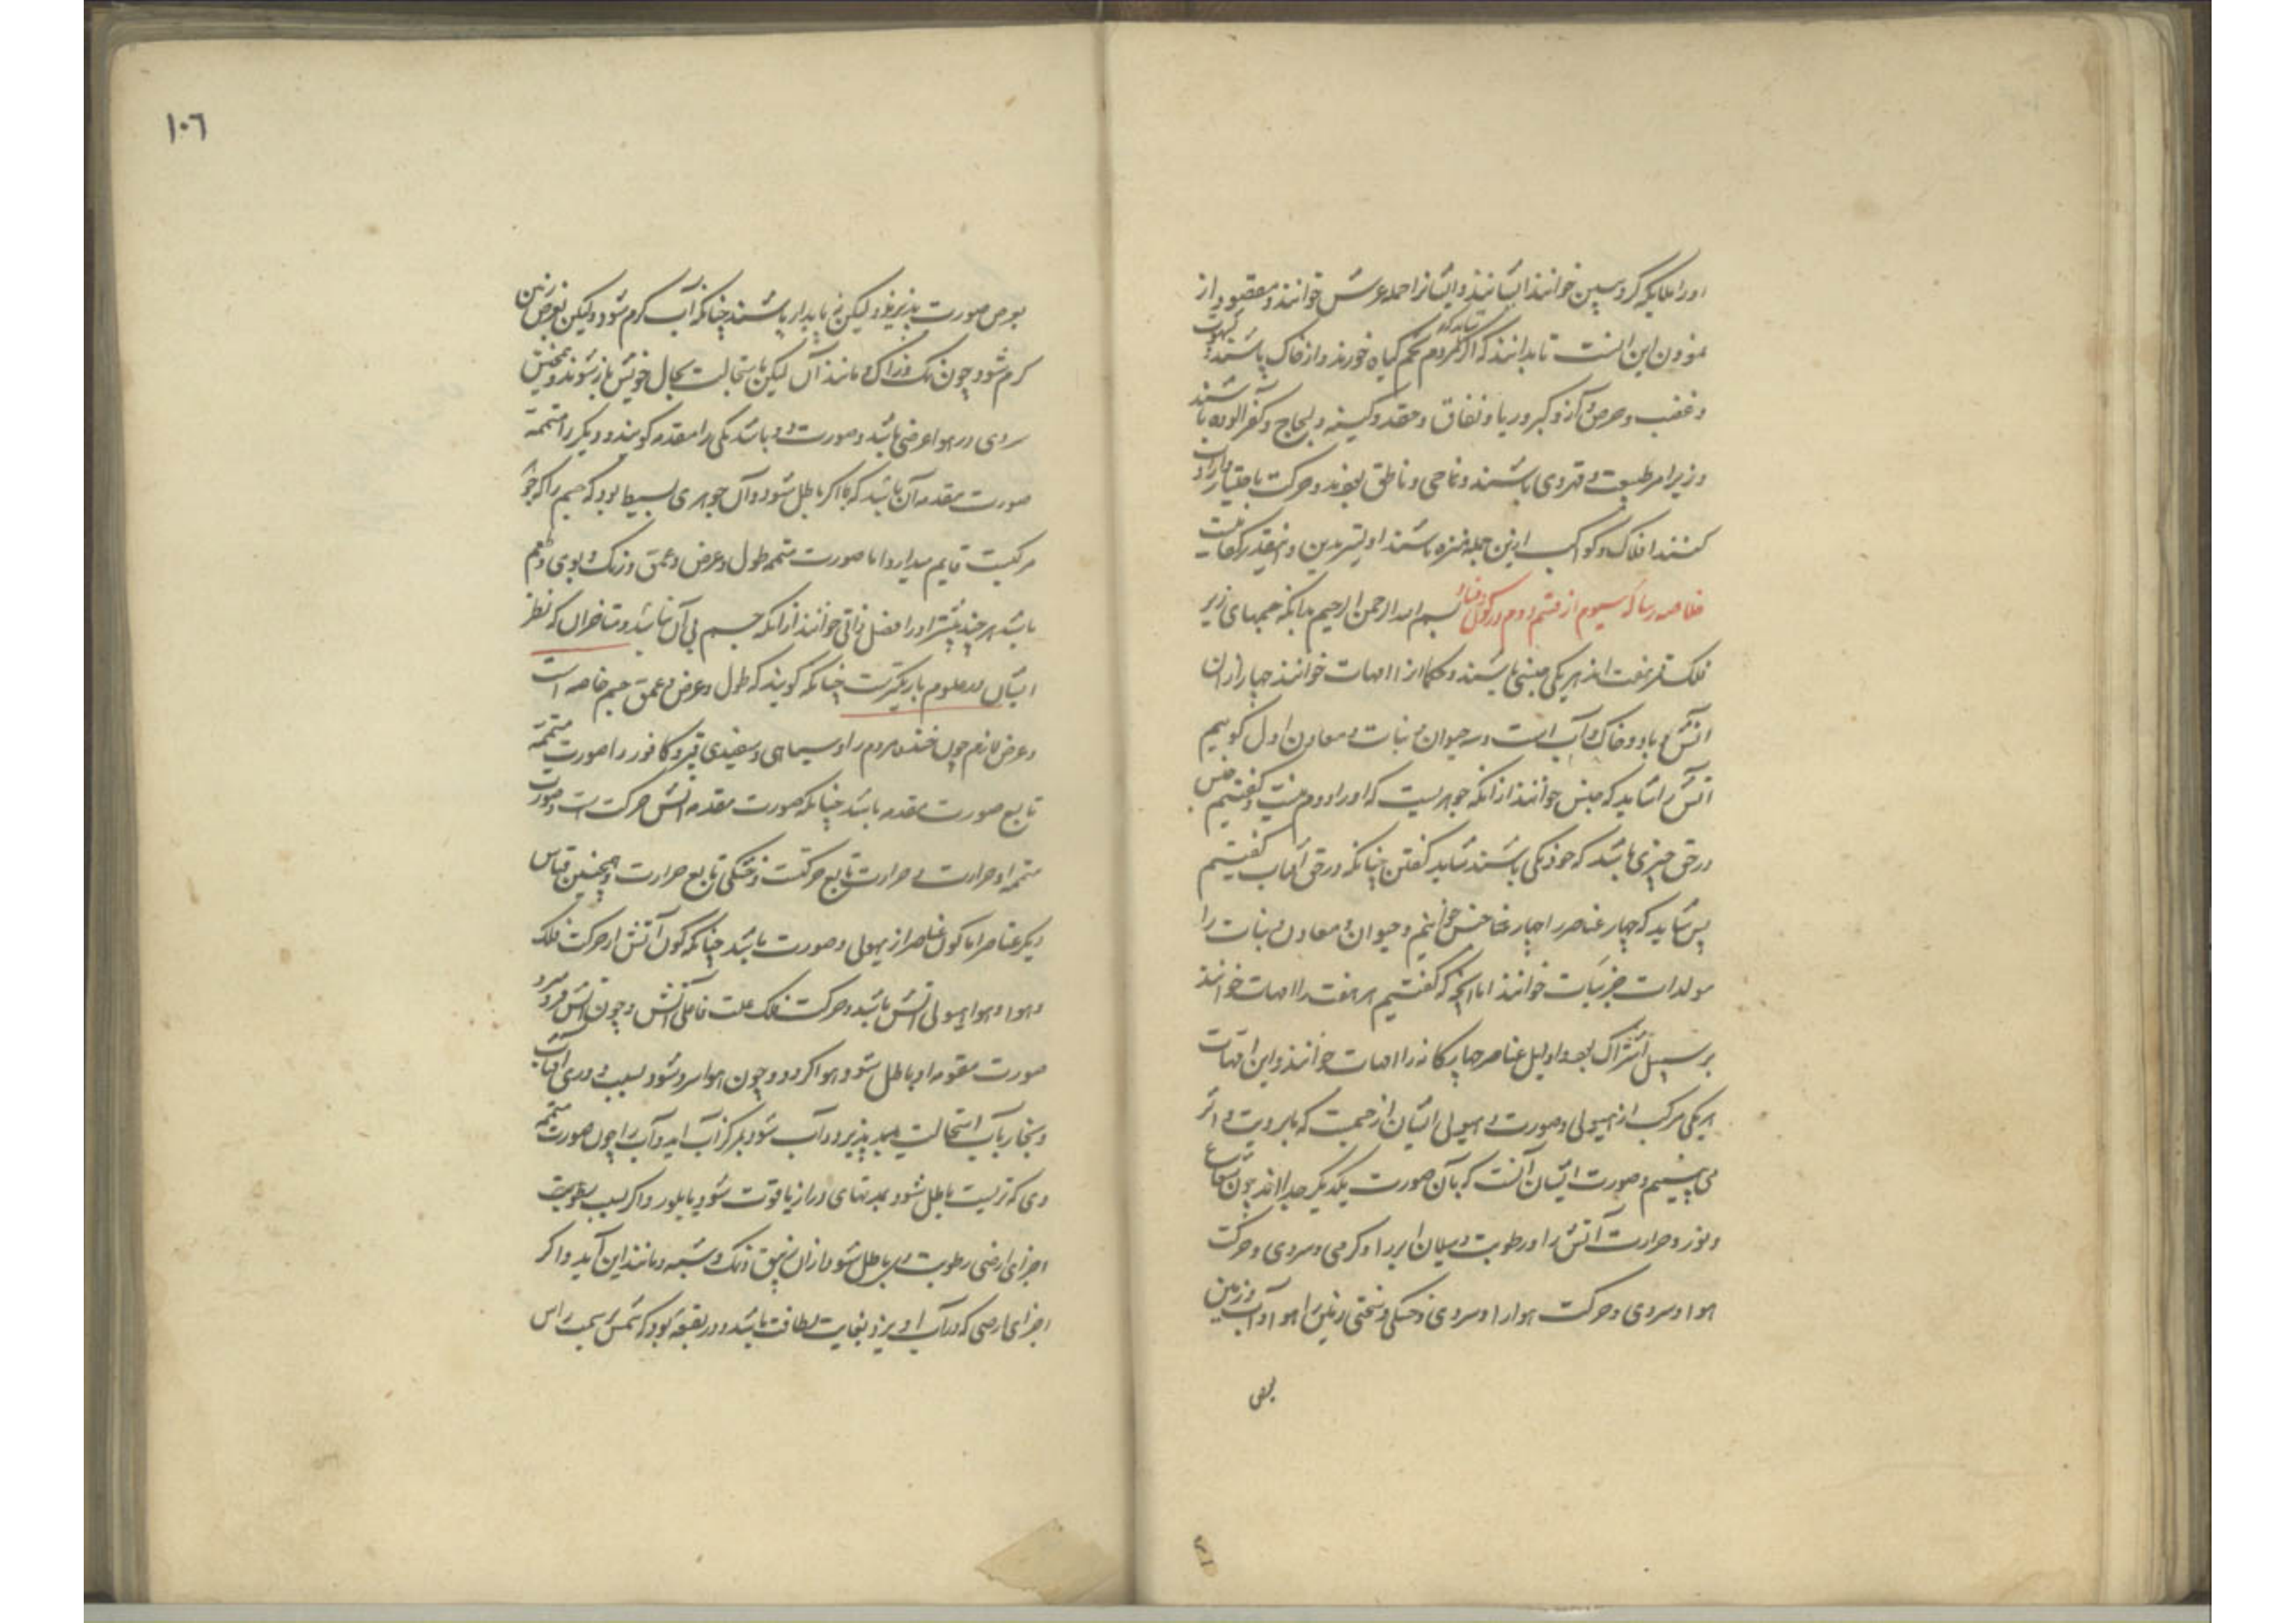 اورا ملایکه کروبین خوانند ایشانند و ایشانرا حمله عرش خوانند و مقصود از
نمودن این آنست تا بدانند که اگر مردم تخم گیاه خورند و از خاک باشند و شهوت
و غضب و حرص و آز و کبر و ریا و نفاق و حقد و کینه و لجاج و کفر آلوده باشند
و زیر امر طبیعت و قهر وی باشند و ناحی و ناطق بوند و حرکت باختیار و ارادت
کنند افلاک و کواکب ازین جمله منزه باشند اولیتر بدین و اینقدر کفایت
خلاصه رساله سیوم از قسم دوم در کون و فساد بسم الله الرحمن الرحیم بدانکه جسمهای زیر
فلک قمر هفت اند هر یکی جنسی باشند و حکما آنرا امهات خوانند چهار ازان
آتش و باد و خاک و آب است و سه حیوان و نبات و معادن اول گوییم
آتش را شاید که جنس خوانند از آنکه جوهریست که او را دوم نیست و گفتیم جنس
در حق چیزی باشد که خود یکی باشند شاید گفتن چنانکه در حق آفتاب گفتیم
پس شاید که چهار عناصر را چهار جنس خوانیم و حیوان و معادن و نبات را
مولدات جزییات خوانند اما آنچه که گفتیم هر هفت را امهات خوانند
بر سبیل اشتراک بود و اولیل عناصر چهارگانه را امهات خوانند و این امهات
هر یکی مرکب از هیولی و صورت و هیولی ایشان از جسمیت که بابرویت و اثر
می بینیم و صورت ایشان آنست که بآن صورت یکدیگر جدا اند چون شعاع
و نور و حرارت آتش را و رطوبت و سیلان آب را و گرمی و سردی و حرکت
هوا و سردی و حرکت هوا را و سردی و خشکی و سختی زمین را هوا و آب و زمین
بعرض
١٠٦
بعرض صورت پذیرند و لیکن نه پایدار باشند چنانکه آب گرم شود و لیکن بعرض زمین
گرم شود چون نمک و زاک و مانند آن لیکن باستحالت بحال خویش باز شوند و همچنین
سردی در هوا عرضی باشد و صورت دو باشد یکی را مقدمه گویند و دیگر را متممه
صورت مقدمه آن باشد که تا اگر باطل شود و آن جوهری بسیط بود که جسم را که جزو
مرکبست قایم میدارد اما صورت متممه طول و عرض و عمق و رنگ و بوی و طعم
باشد هر چند بیشتر او را فصل ذاتی خوانند از آنکه جسم بی آن نباشد و متاخران که نظر
ایشان در علوم باریکترست چنانکه گویند که طول و عرض و عمق جسم خاصه است
و عرض لازم چون خنده مردم را و سیاهی و سفیدی قیر و کافور را صورت متممه
تابع صورت مقدمه باشد چنانکه صورت مقدمه آتش حرکت است و صورت
متممه او حرارت و حرارت تابع حرکتست و خشکی تابع حرارت و همچنین قیاس
دیگر عناصر اما کون عناصر از هیولی و صورت باشد چنانکه کون آتش از حرکت فلک
و هوا و هوا هیولی آتش باشد و حرکت فلک علت فاعلی آتش و چون آتش فرو میرد
صورت مقومه او باطل شود و هوا گردد و چون هوا سرد شود بسبب دوری آفتاب
و بخار بآب استحالت پذیرد و آب شود بمرکز آب آید و آب را چون صورت متممه
وی که تریست باطل شود بمدتهای دراز یاقوت شود یا بلور و اگر بسبب تقویت
اجزای ارضی رطوبت وی باطل شود از آن زیبق و نمک و شبه و مانند این آید و اگر
اجزای ارضی که در آب آویزد بغایت لطافت باشد و در بقعه بود که شمس بسمت راس